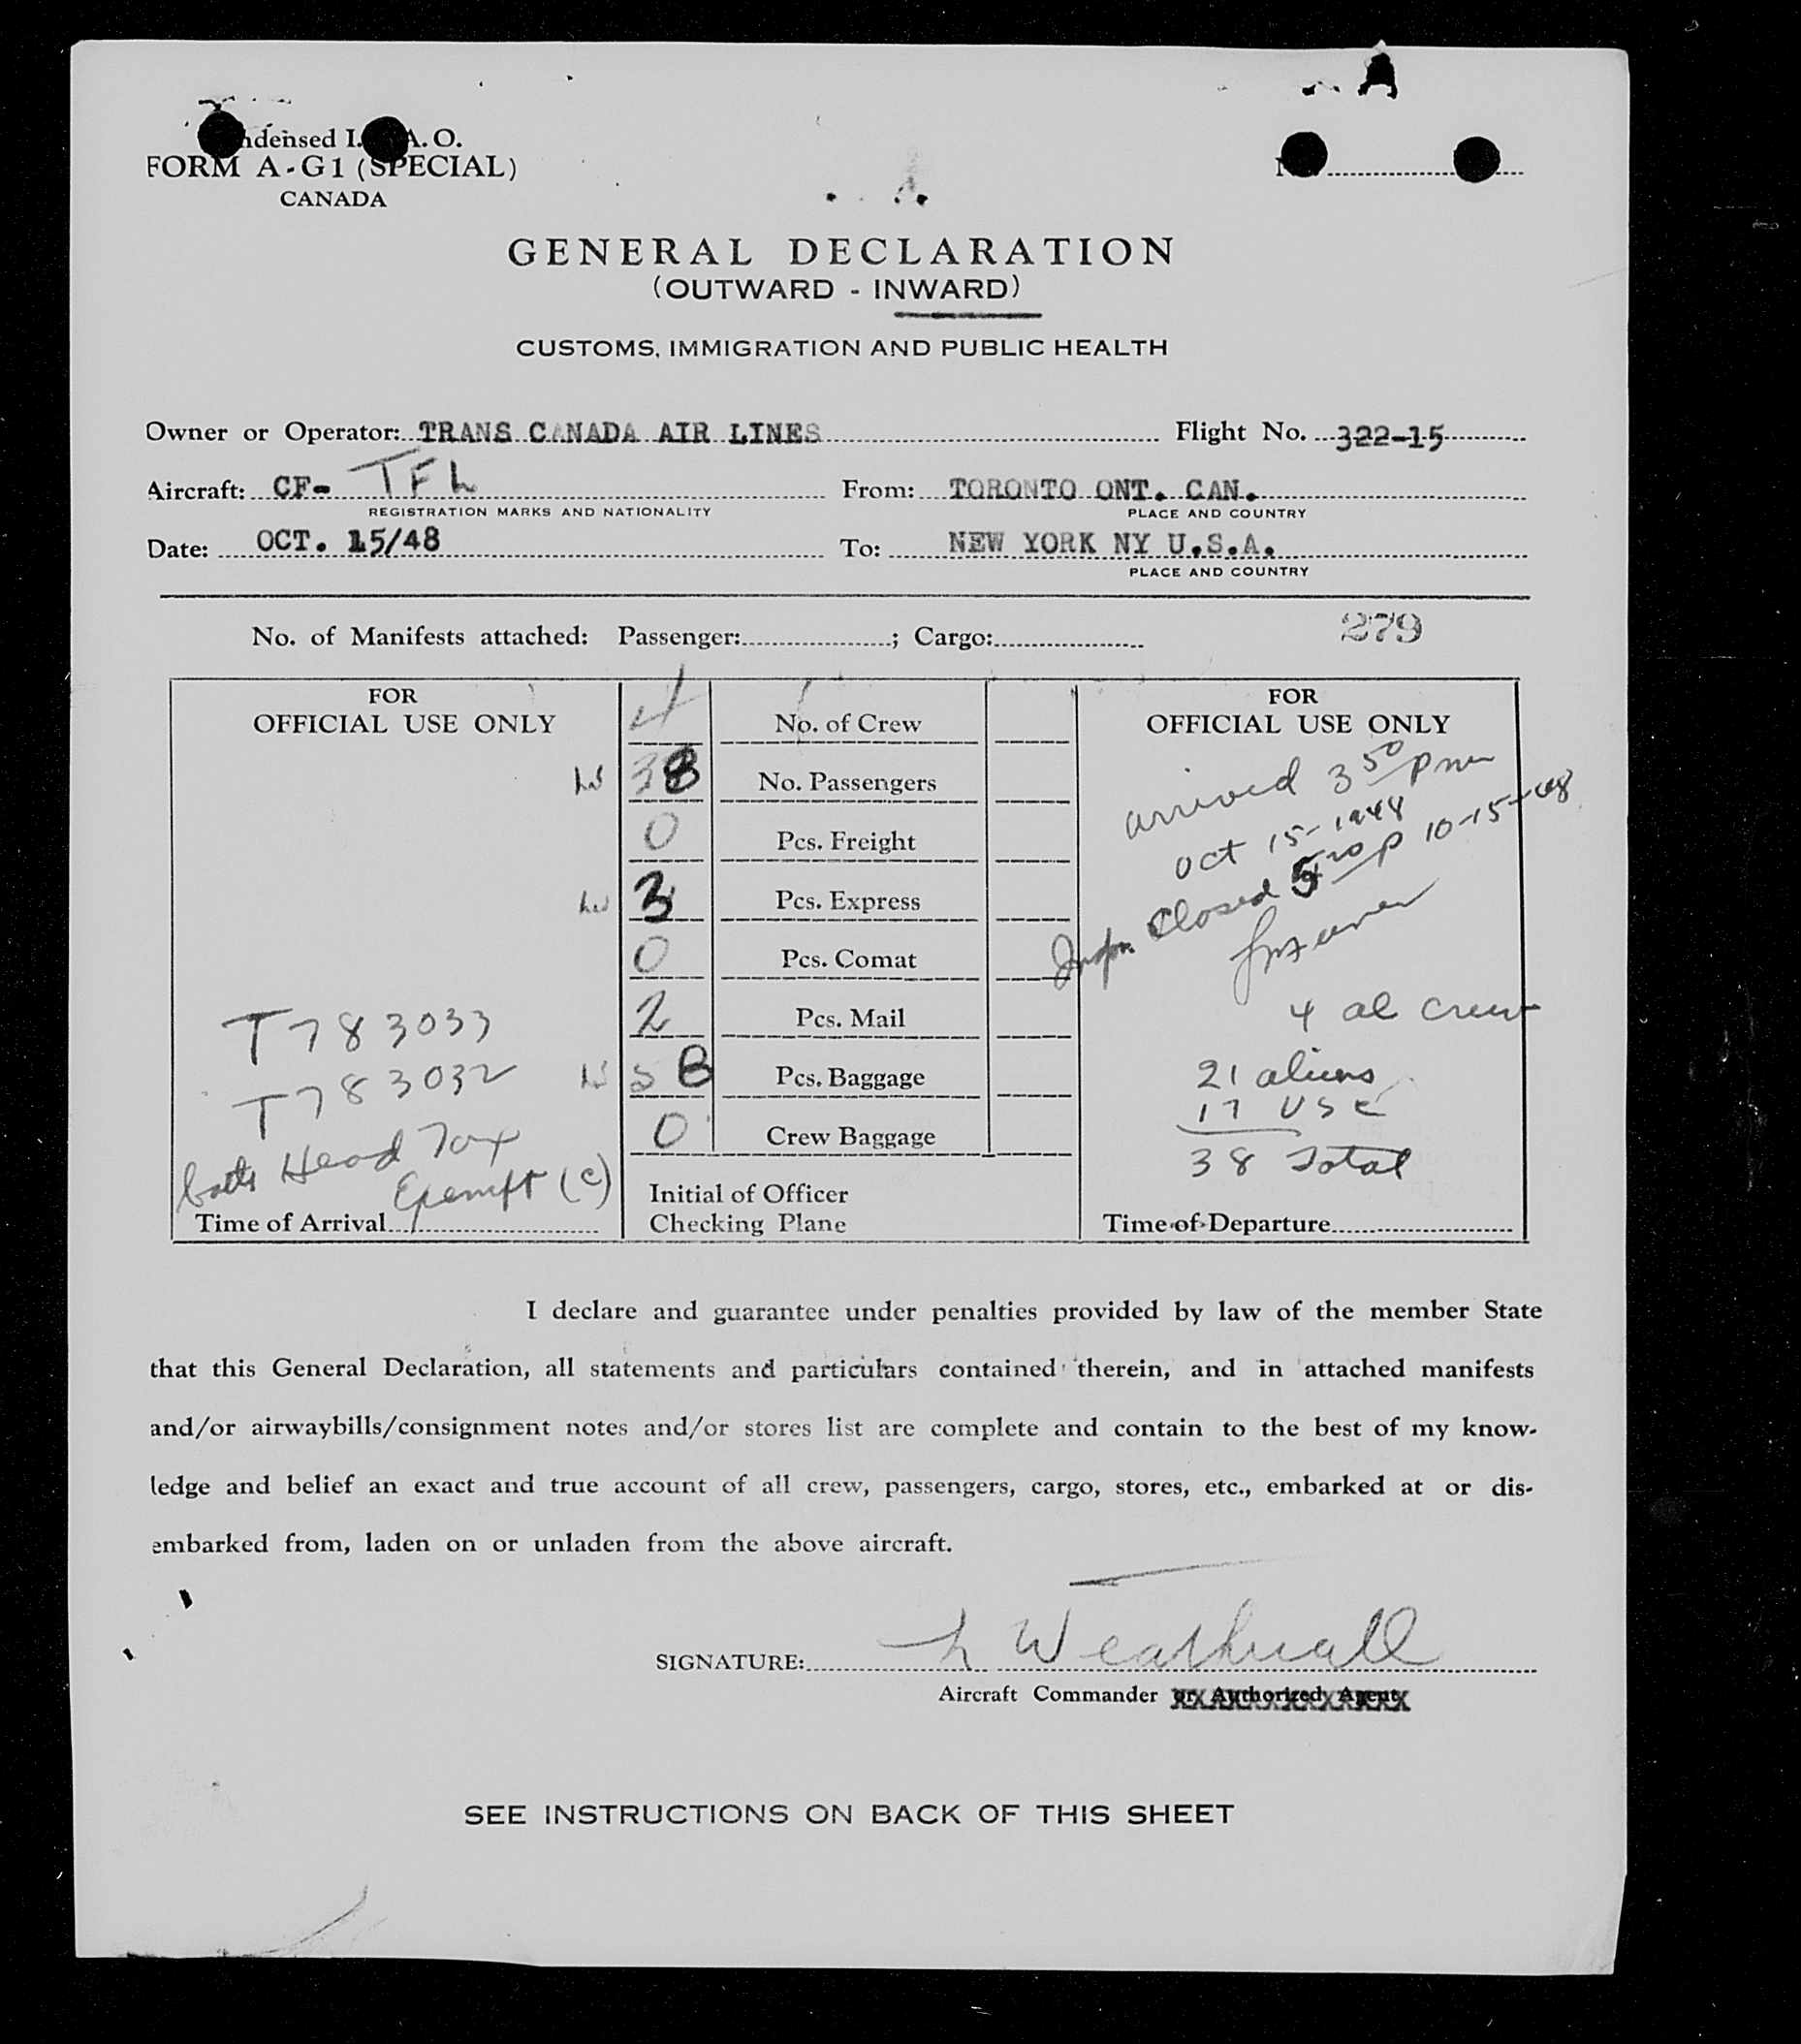 ndensed I. A.O.
FORM A-G1 (SPECIAL)
CANADA
GENERAL DECLARATION
(OUTWARD - INWARD)
CUSTOMS, IMMIGRATION AND PUBLIC HEALTH
Owner or Operator: TRANS CANADA AIR LINES Flight No. 322-15
Aircraft: CF- TFL From: TORONTO ONT. CAN.
REGISTRATION MARKS AND NATIONALITY PLACE AND COUNTRY
Date: OCT. 15/48 To: NEW YORK NY U.S.A.
PLACE AND COUNTRY
No. of Manifests attached: Passenger: ; Cargo: 279
FOR
OFFICIAL USE ONLY
T783033
T783032
Both Head Tax
Exempt (C)
Time of Arrival
4 No. of Crew
38 No. Passengers
0 Pcs. Freight
3 Pcs. Express
0 Pcs. Comat
2 Pcs. Mail
Pcs. Baggage
0 Crew Baggage
Initial of Officer
Checking Plane
FOR
OFFICIAL USE ONLY
arrived 3 50 pm
Oct 15-1948
Closed 5 20 P 10-15-48
4 al crew
21 aliens
17 USC
38 Total
Time of Departure
I declare and guarantee under penalties provided by law of the member State
that this General Declaration, all statements and particulars contained therein, and in attached manifests
and/or airwaybills/consignment notes and/or stores list are complete and contain to the best of my know-
ledge and belief an exact and true account of all crew, passengers, cargo, stores, etc., embarked at or dis-
embarked from, laden on or unladen from the above aircraft.
SIGNATURE:
Aircraft Commander or Authorized Agent
SEE INSTRUCTIONS ON BACK OF THIS SHEET